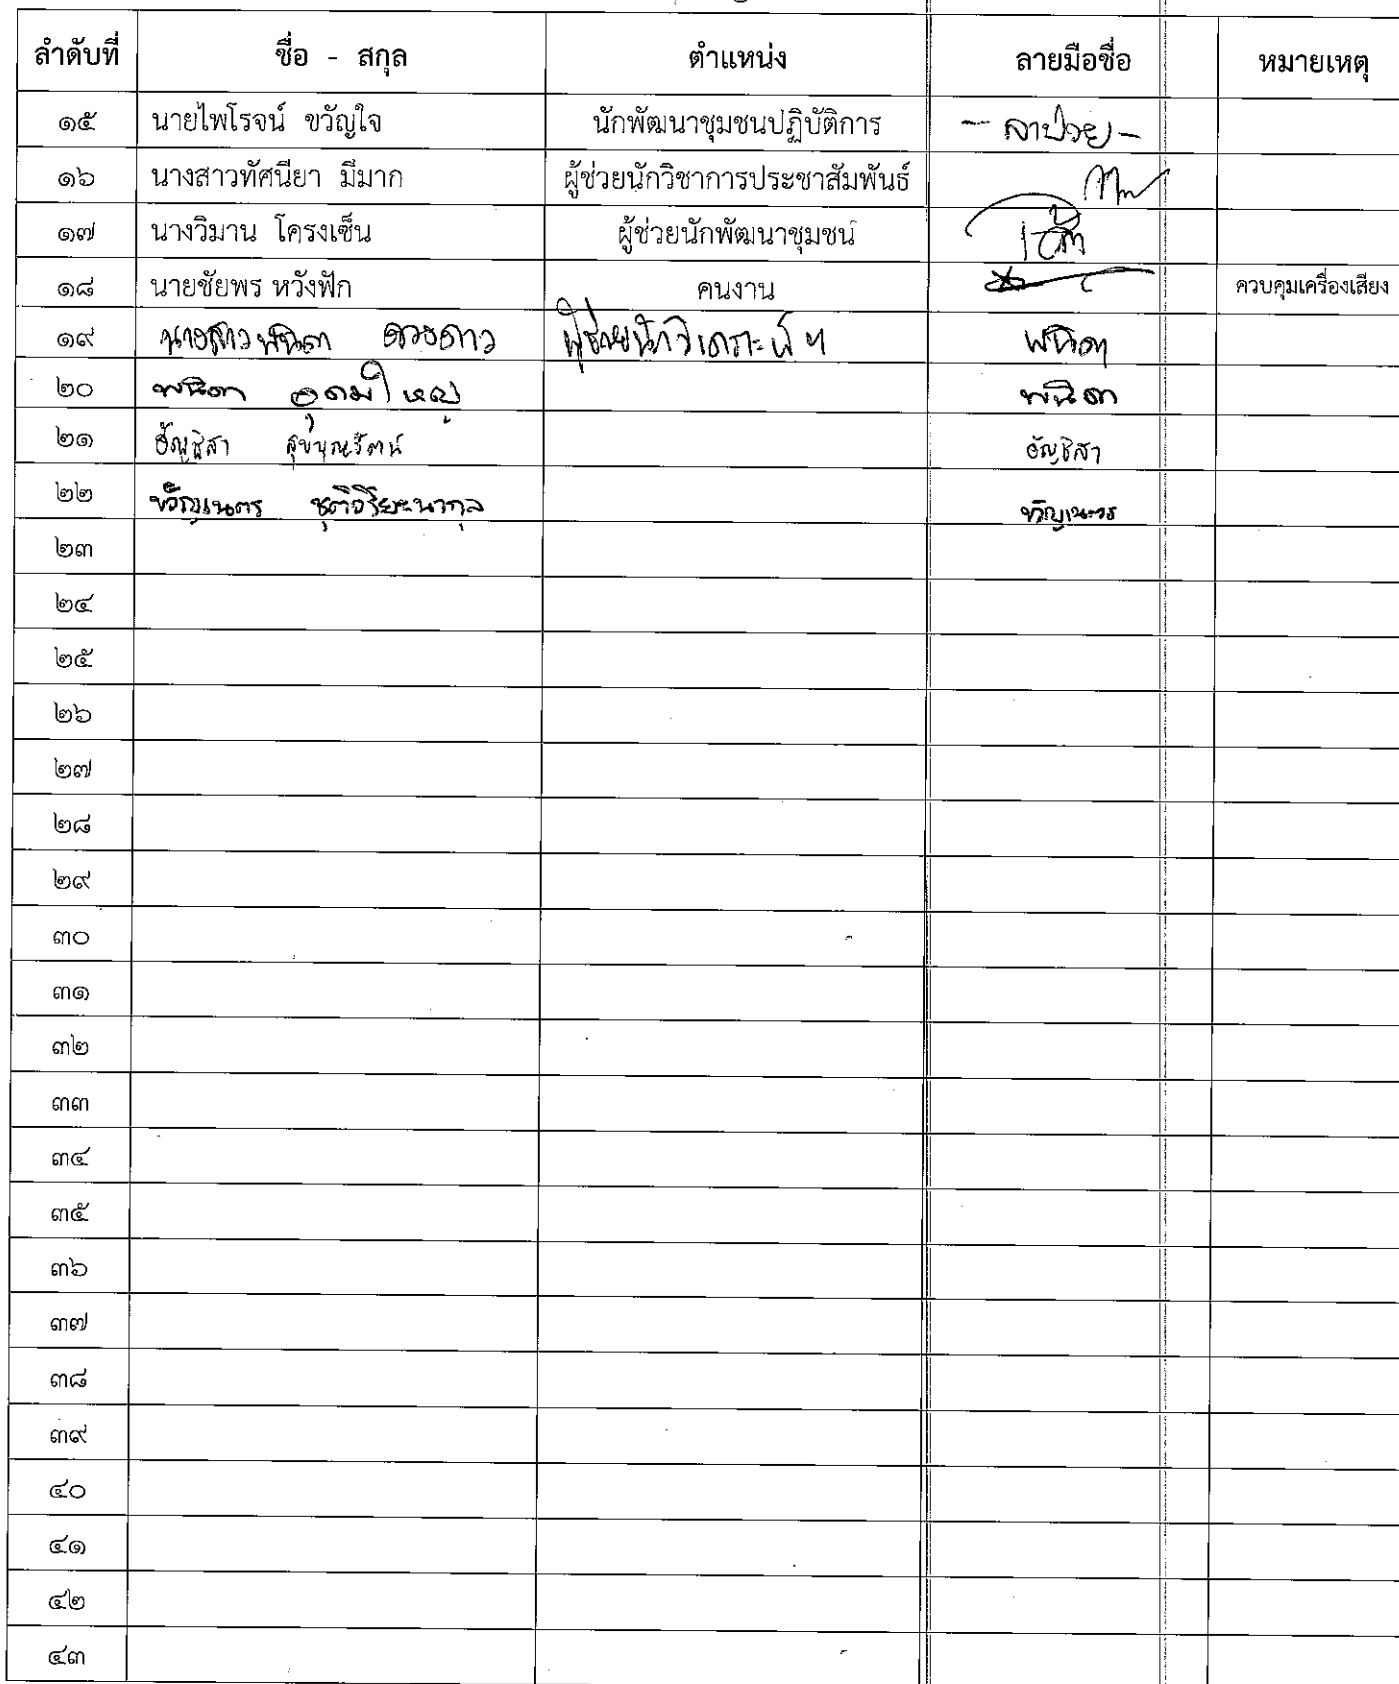 ลำดับที่ ชื่อ - สกุล ตำแหน่ง ลายมือชื่อ หมายเหตุ
๑๕ นายไพโรจน์ ขวัญใจ นักพัฒนาชุมชนปฏิบัติการ - ลาป่วย -
๑๖ นางสาวทัศนียา มีมาก ผู้ช่วยนักวิชาการประชาสัมพันธ์
๑๗ นางวิมาน โครงเซ็น ผู้ช่วยนักพัฒนาชุมชน
๑๘ นายชัยพร หวังฟัก คนงาน ควบคุมเครื่องเสียง
๑๙ นางสาวพนิดา ดวงดาว ผู้ช่วยนักวิเคราะห์ฯ พนิดา
๒๐ พนิดา อุดมใหญ่ พนิดา
๒๑ ธัญชิสา สุขบุณรัตน์ ธัญชิสา
๒๒ ขวัญเนตร ชุติวิริยะนากุล ขวัญเนตร
๒๓
๒๔
๒๕
๒๖
๒๗
๒๘
๒๙
๓๐
๓๑
๓๒
๓๓
๓๔
๓๕
๓๖
๓๗
๓๘
๓๙
๔๐
๔๑
๔๒
๔๓